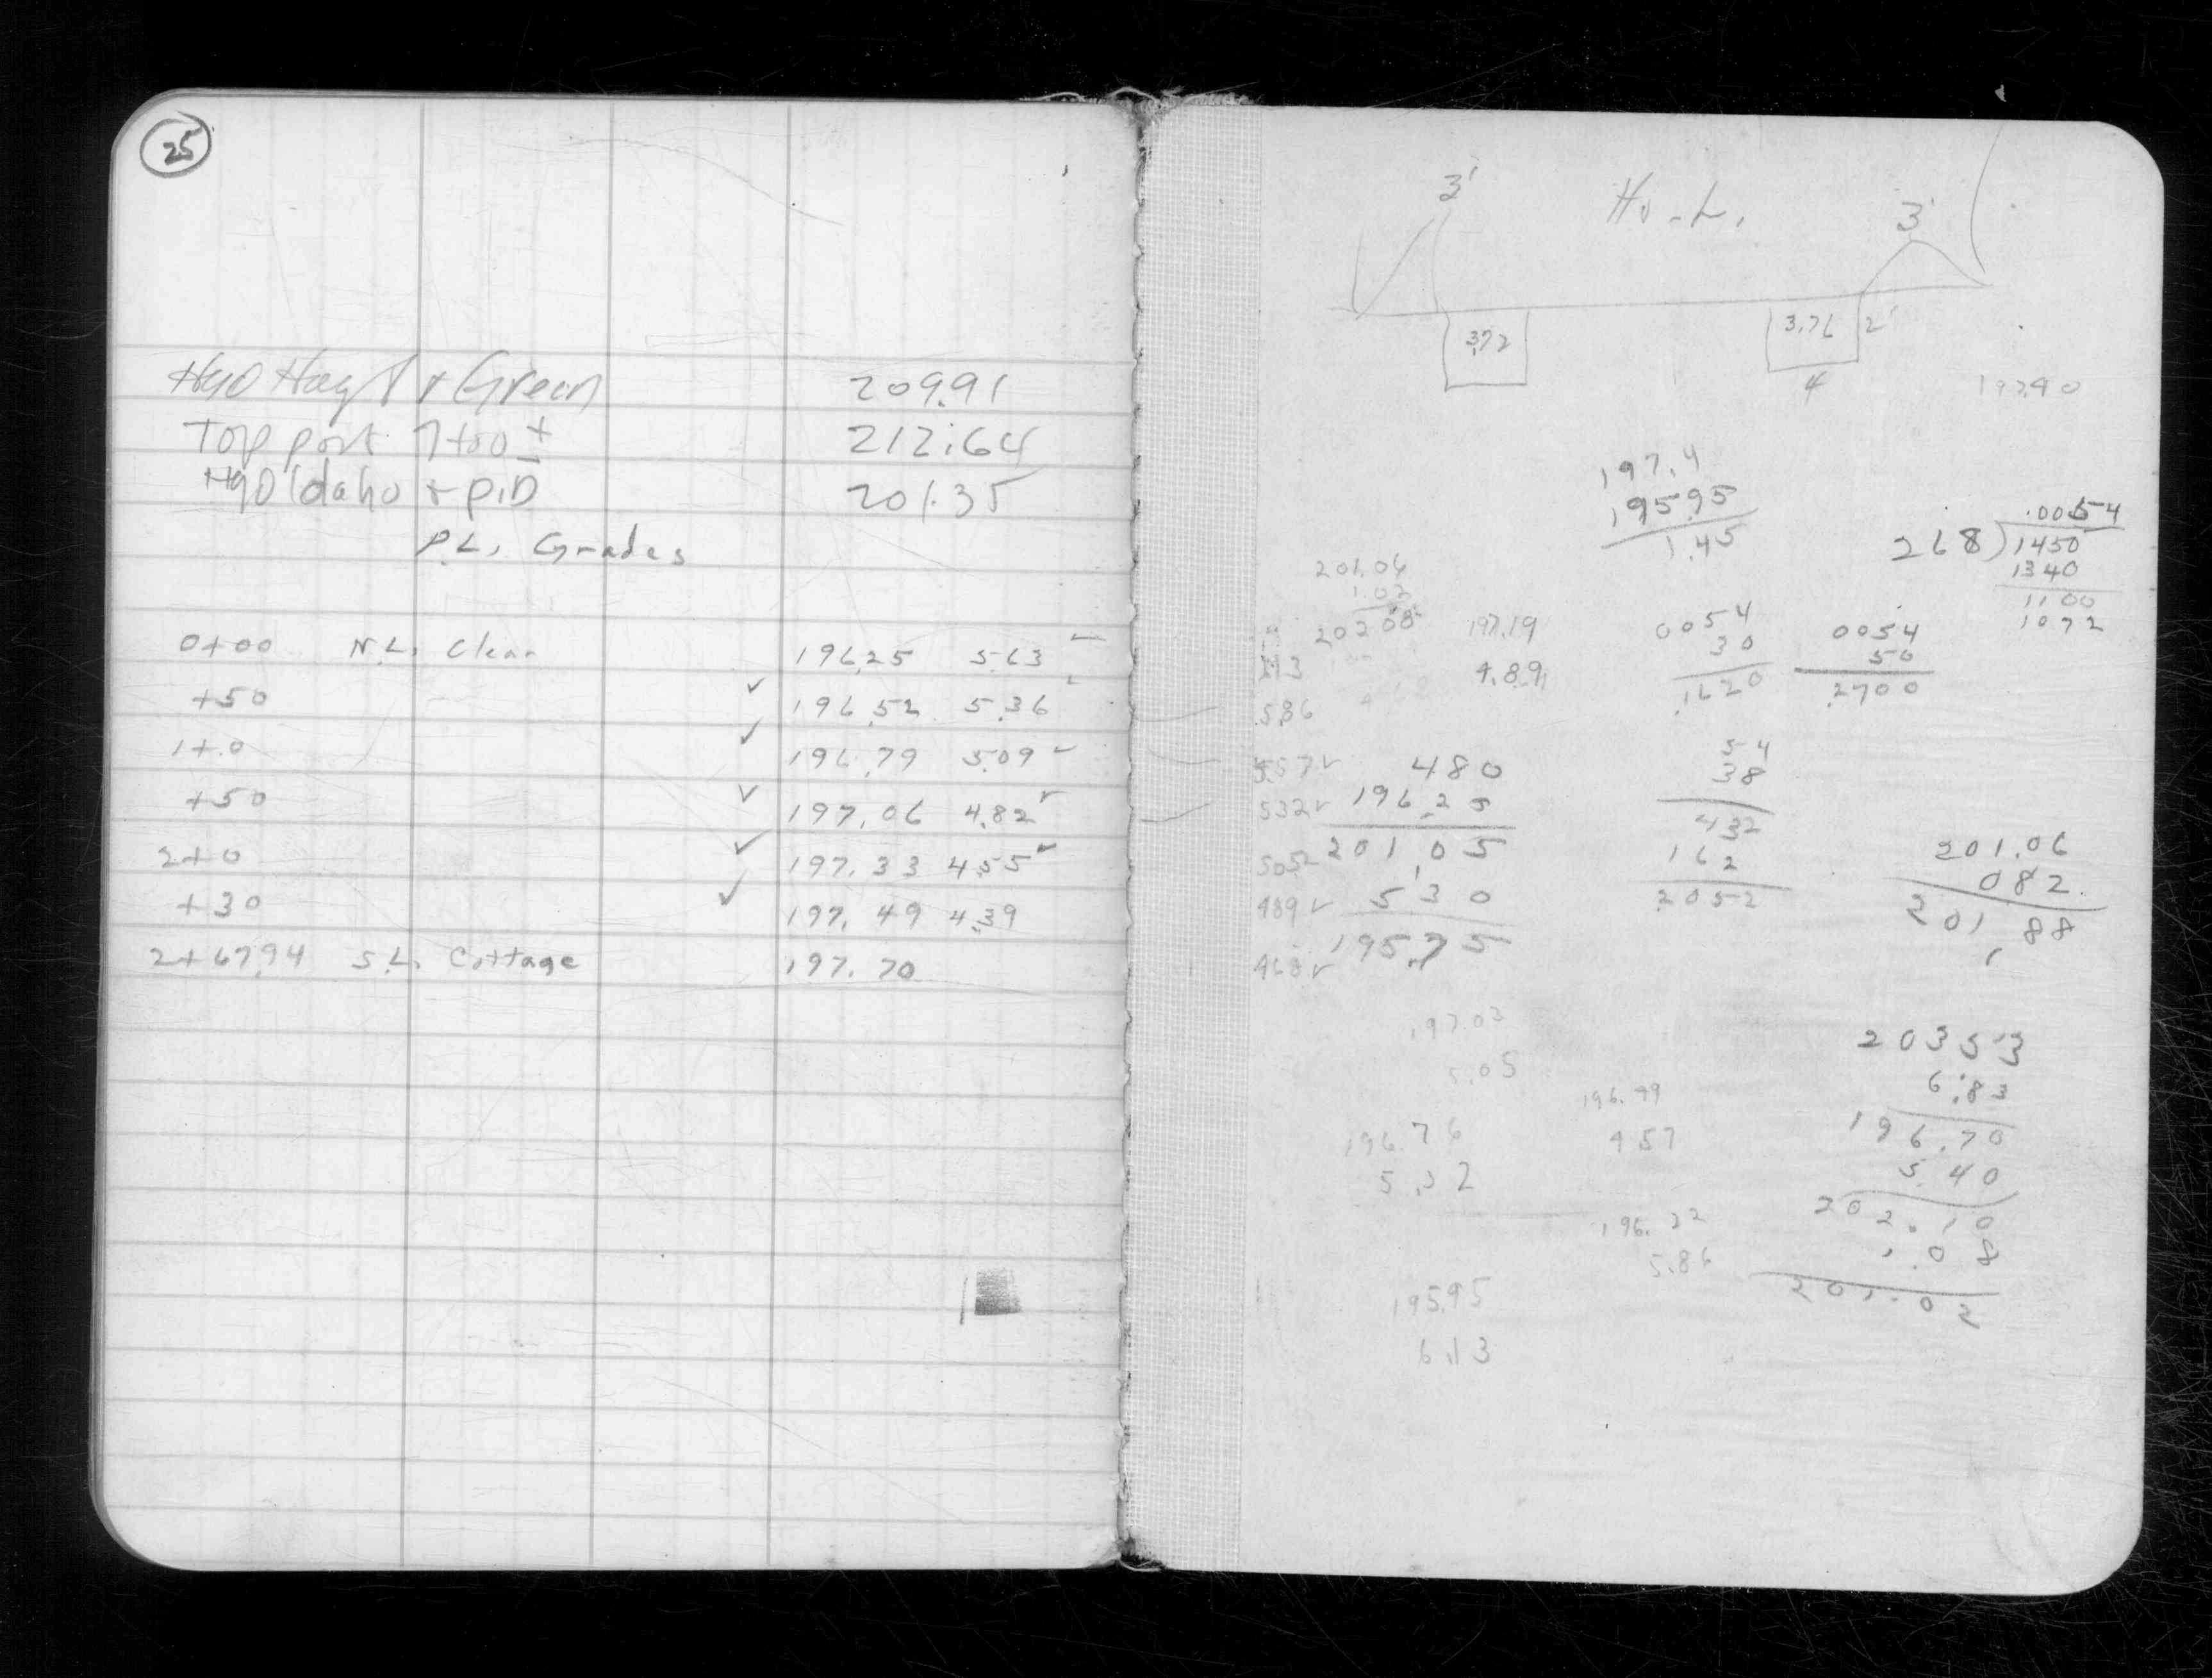 25
Hyd Hayt + Green 209.91
Top port 7+00 ± 212.64
Hyd Idaho + P.D 201.35
P.L. Grades
0+00 N.L. Clean 196.25 5.63
+50 ✓ 196.52 5.36
1+0 ✓ 196.79 5.09 ✓
+50 ✓ 197.06 4.82 ✓
2+0 ✓ 197.33 4.55 ✓
+30 ✓ 197.49 4.39
2+67.94 S.L. Cottage 197.70
3' 3'
3.72 3.76 2'
4
197.40
197.4
195.95
1.45
.0054
268)1450
1340
1100
1072
201.06
1.02
202.08
197.19
4.89
0054
30
.1620
0054
50
.2700
5.86
5.57 ✓
5.32 ✓
5.05
4.89 ✓
4.68 ✓
480
196.25
201.05
5.30
195.75
54
38
432
162
2052
201.06
082
201.88
197.03
5.05
203.53
6.83
196.70
5.40
202.10
1.08
201.02
196.76
5.32
4.57
196.22
5.86
195.95
6.13